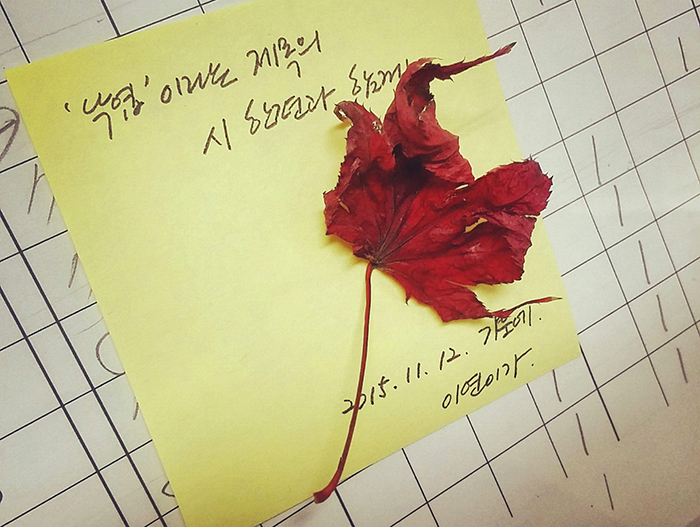 '낙엽' 이라는 제목의
시 한편과 함께
2015. 11. 12. 가을에.
이연이가.